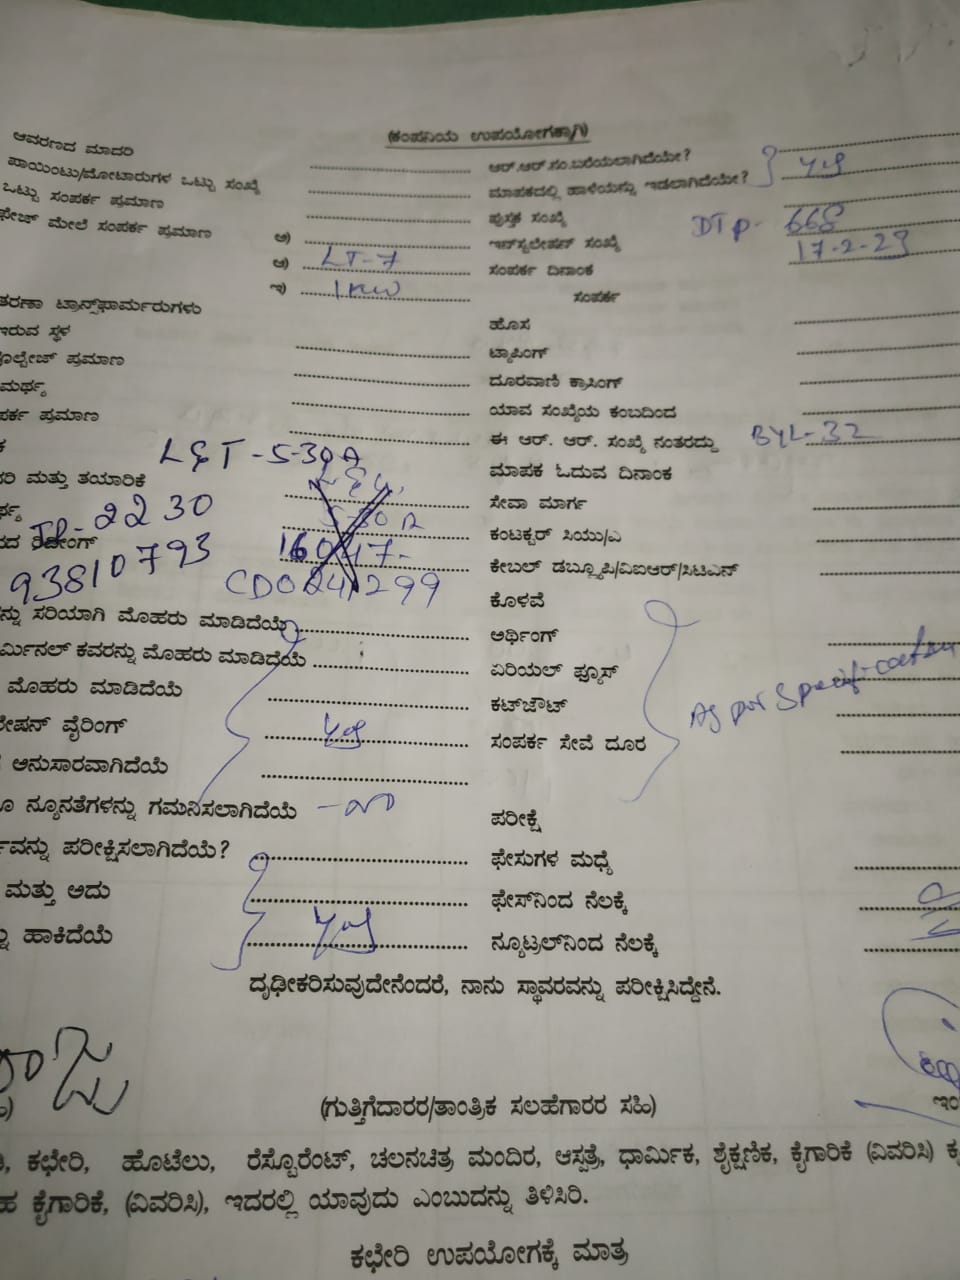 (ಕಂಪನಿಯ ಉಪಯೋಗಕ್ಕಾಗಿ)
ಆವರಣದ ಮಾದರಿ
ಆರ್.ಆರ್.ಸಂ.ಬರೆಯಲಾಗಿದೆಯೇ?
ಪಾಯಿಂಟು/ಮೋಟಾರುಗಳ ಒಟ್ಟು ಸಂಖ್ಯೆ
ಮಾಪಕದಲ್ಲಿ ಹಾಳೆಯನ್ನು ಇಡಲಾಗಿದೆಯೇ? Yes
ಒಟ್ಟು ಸಂಪರ್ಕ ಪ್ರಮಾಣ
ಪುಸ್ತಕ ಸಂಖ್ಯೆ
ಫೇಜ್ ಮೇಲೆ ಸಂಪರ್ಕ ಪ್ರಮಾಣ ಅ)
ಇನ್‌ಸ್ಟಲೇಷನ್ ಸಂಖ್ಯೆ DTP- 668
ಆ) LT-7
ಸಂಪರ್ಕ ದಿನಾಂಕ 17-2-23
ಇ) 1KW
ಸಂಪರ್ಕ
ತರಣಾ ಟ್ರಾನ್ಸ್‌ಫಾರ್ಮರುಗಳು
ಹೊಸ
ಇರುವ ಸ್ಥಳ
ಟ್ಯಾಪಿಂಗ್
ವೋಲ್ಟೇಜ್ ಪ್ರಮಾಣ
ದೂರವಾಣಿ ಕ್ರಾಸಿಂಗ್
ಮರ್ಥ್ಯ
ಯಾವ ಸಂಖ್ಯೆಯ ಕಂಬದಿಂದ
ಪರ್ಕ ಪ್ರಮಾಣ
ಈ ಆರ್. ಆರ್. ಸಂಖ್ಯೆ ನಂತರದ್ದು BYL-32
L&T-5-30A
ಮಾಪಕ ಓದುವ ದಿನಾಂಕ
ದರಿ ಮತ್ತು ತಯಾರಿಕೆ
ಸೇವಾ ಮಾರ್ಗ
2230
5-30A
ಕಂಟಕ್ಟರ್ ಸಿಯು/ಎ
ರೀಡಿಂಗ್
ಕೇಬಲ್ ಡಬ್ಲ್ಯೂಪಿ/ವಿಐಆರ್/ಸಿಟಿಎಸ್
93810793
ಕೊಳವೆ
ನ್ನು ಸರಿಯಾಗಿ ಮೊಹರು ಮಾಡಿದೆಯೆ
ಅರ್ಥಿಂಗ್
ರ್ಮಿನಲ್ ಕವರನ್ನು ಮೊಹರು ಮಾಡಿದೆಯೆ
ಏರಿಯಲ್ ಫ್ಯೂಸ್
ಮೊಹರು ಮಾಡಿದೆಯೆ
ಕಟ್‌ಔಟ್ As per Specification
ಲೇಷನ್ ವೈರಿಂಗ್ Yes
ಸಂಪರ್ಕ ಸೇವೆ ದೂರ
ಅನುಸಾರವಾಗಿದೆಯೆ
ನ್ಯೂನತೆಗಳನ್ನು ಗಮನಿಸಲಾಗಿದೆಯೆ - no
ಪರೀಕ್ಷೆ
ವನ್ನು ಪರೀಕ್ಷಿಸಲಾಗಿದೆಯೆ?
ಫೇಸುಗಳ ಮಧ್ಯೆ
ಮತ್ತು ಅದು
ಫೇಸ್‌ನಿಂದ ನೆಲಕ್ಕೆ
ಹಾಕಿದೆಯೆ Yes
ನ್ಯೂಟ್ರಲ್‌ನಿಂದ ನೆಲಕ್ಕೆ
ದೃಢೀಕರಿಸುವುದೇನೆಂದರೆ, ನಾನು ಸ್ಥಾವರವನ್ನು ಪರೀಕ್ಷಿಸಿದ್ದೇನೆ.
(ಗುತ್ತಿಗೆದಾರರ/ತಾಂತ್ರಿಕ ಸಲಹೆಗಾರರ ಸಹಿ)
ಕಛೇರಿ, ಹೊಟೆಲು, ರೆಸ್ಟೊರೆಂಟ್, ಚಲನಚಿತ್ರ ಮಂದಿರ, ಆಸ್ಪತ್ರೆ, ಧಾರ್ಮಿಕ, ಶೈಕ್ಷಣಿಕ, ಕೈಗಾರಿಕೆ (ವಿವರಿಸಿ)
ಹ ಕೈಗಾರಿಕೆ, (ವಿವರಿಸಿ), ಇದರಲ್ಲಿ ಯಾವುದು ಎಂಬುದನ್ನು ತಿಳಿಸಿರಿ.
ಕಛೇರಿ ಉಪಯೋಗಕ್ಕೆ ಮಾತ್ರ